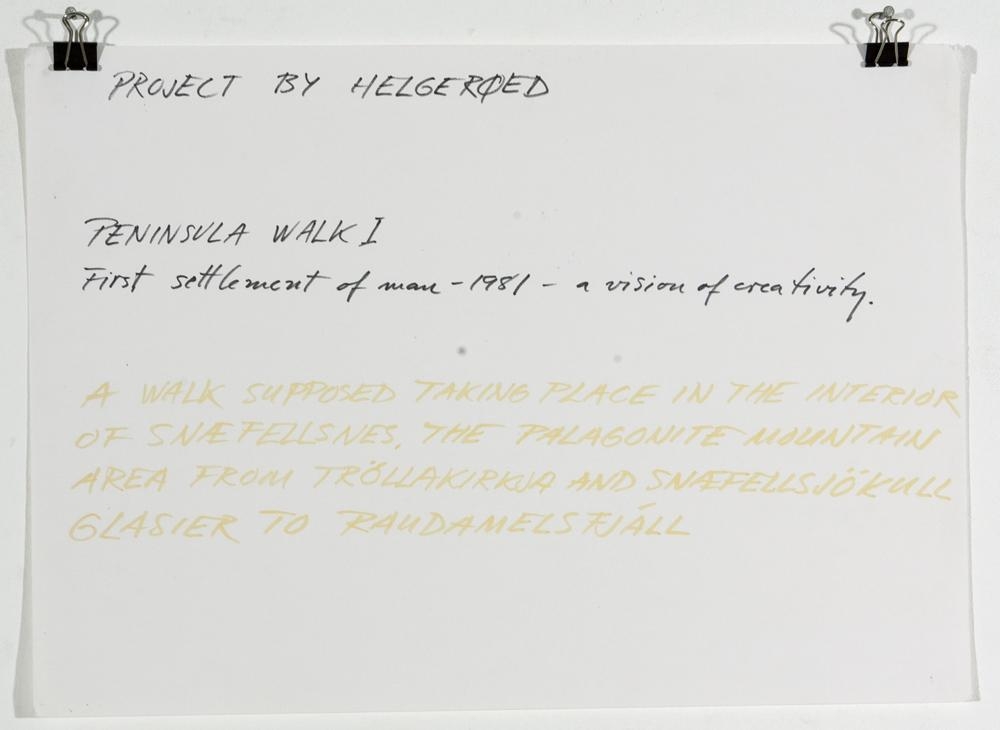 PROJECT BY HELGERØED
PENINSULA WALK I
First settlement of man - 1981 - a vision of creativity.
A WALK SUPPOSED TAKING PLACE IN THE INTERIOR
OF SNÆFELLSNES, THE PALAGONITE MOUNTAIN
AREA FROM TRÖLLAKIRKJA AND SNÆFELLSJÖKULL
GLASIER TO RAUDAMELSFJÁLL